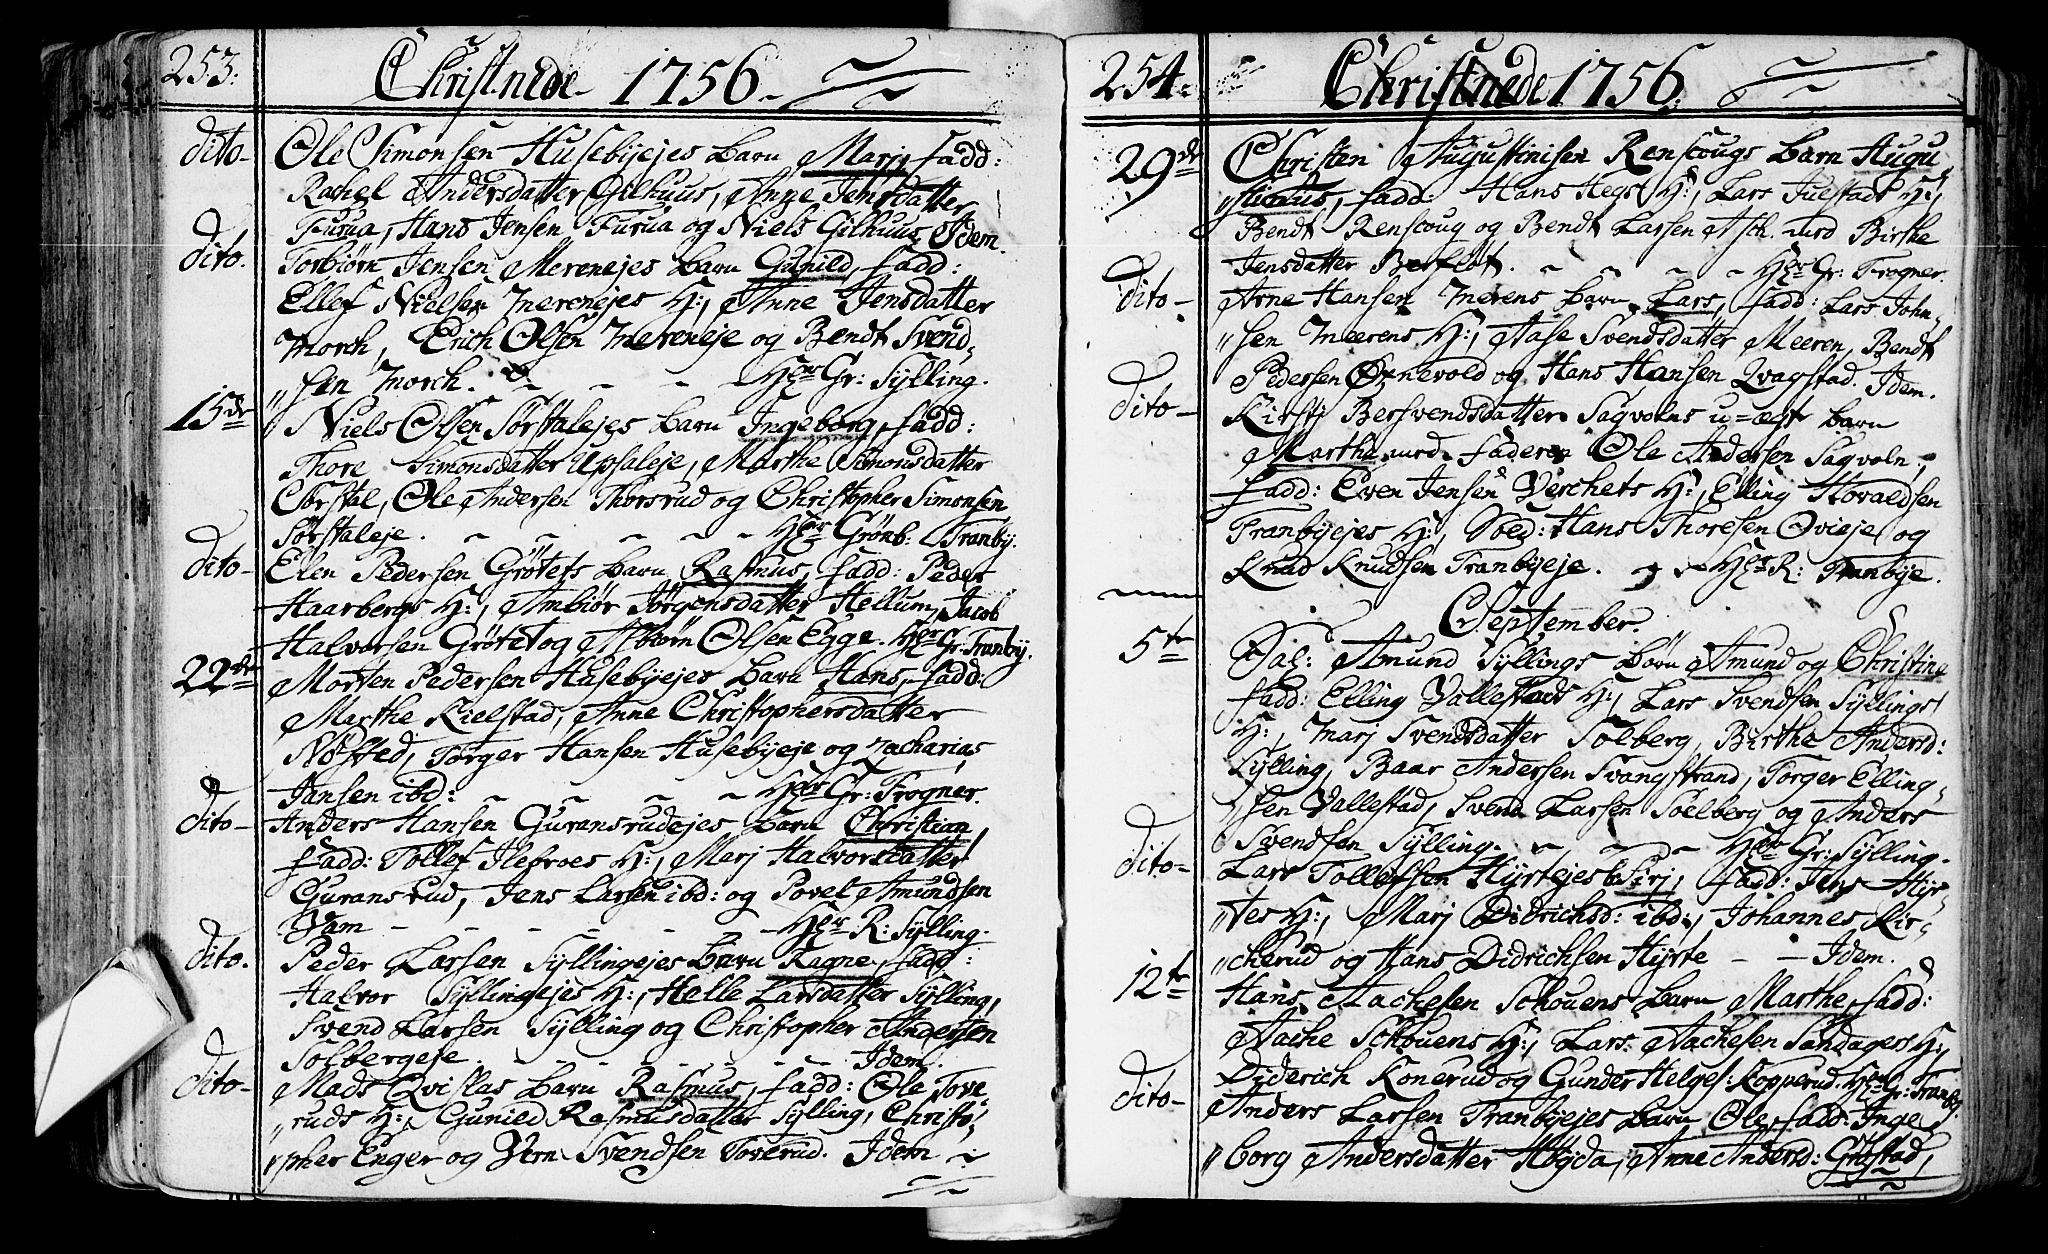 253. Christnede 1756.
dito- Ole Simonsen Husebyejes barn Marj fadd:
Rachel Andersdatter Gilhuus, Anne Jensdatter
Furua, Hans Jensen Furua og Niels Gilhuus. Idem.
dito. Torbiørn Jensen Merenejes barn Gunild, fadd:
Ellef Nielsen Merenejes H:, Anne Jensdatter
Morch, Erich Olsen Mereneje og Bendt Svend-
„sen Morch. - - - - Hcor Gr: Sylling.
15de Niels Olsen Sørstalejes barn Ingeborg, fadd:
Thore Simonsdatter Upsaleje, Marthe Simonsdatter
Sørstal, Ole Andersen Thorsrud og Christopher Simonsen
Sørstaleje. - - - - - Hcor Grönb: Tranby.
dito- Elen Pedersen Grötets barn Rasmus, fadd: Peder
Haarbergs H:, Ambiör Jörgensdatter Hellum, Jacob
Halvorsen Grötet og Asbiørn Olsen Egge. Hcor Gr: Tranby.
22de Morten Pedersen Husebyejes barn Hans, fadd:
Marthe Kielstad, Anne Christophersdatter
Nøsted, Torger Hansen Husebyeje og Zacharias
Jansen ibd: - - - - Hcor Gr: Frogner.
dito- Anders Hansen Guransrudejes barn Christian,
fadd: Tollef Ilebroes H:, Marj Halvorsdatter
Guransrud, Jens Larsen ibd: og Povel Amundsen
Vam - - - - - - Hcor R: Sylling.
dito. Peder Larsen Syllingejes barn Ragne, fadd:
Halvor Syllingejes H:, Helle Larsdatter Sylling,
Svend Larsen Sylling og Christopher Andersen
Solbergeje. - - - - - Idem.
dito- Mads Qvislas barn Rasmus, fadd: Ole Tove-
„ruds H:, Gunild Rasmusdatter Sylling, Christo-
„pher Enger og Svendsen Toverud. Idem
254. Christnede 1756.
29de Christen Augustinisen Renscougs barn Augu-
„stinus, fadd: Hans Hegs H:, Lars Juelstads H:,
Bendt Renscoug og Bendt Larsen Ask. med Birthe
Jensdatter Berflöt. - - - - Hcor Gr: Frogner.
dito- Arne Hansen Merens barn Lars, fadd: Lars John-
„sen Meerens H:, Aase Svendsdatter Meeren, Bendt
Pedersen Ørnevold og Hans Hansen Qvagstad. Idem.
dito- Kirsti Bersvendsdatter Sagvolns u=ægte barn
Marthe med faderen Ole Andersen Sagvoln,
fadd: Even Jensen Verchets H:, Elling Hovaldsen
Tranbyejes H:, Sold: Hans Thoresen Qvieje og
Knud Knudsen Tranbyeje. - - Hcor R: Tranbye.
September.
5te Sal: Amund Syllings börn Amund og Christine
fadd: Elling Vallestads H:, Lars Svendsen Syllings
H:, Marj Svendsdatter Solberg, Birthe Andersd:
Sylling, Baar Andersen Svangstrand, Torger Elling-
„sen Vallestad, Svend Larsen Soelberg og Anders
Svendsen Sylling. - - - Hcor Gr: Sylling.
dito- Lars Tollefsen Hyrtejes b. Sirj, fadd: Jens Hyr-
„tes H:, Marj Didrichsd: ibd:, Johannes Kir-
„cherud og Hans Didrichsen Hyrte - - Idem.
12te Hans Aachesen Schouens barn Marthe, fadd:
Aache Schouens H:, Lars Aachesen Sandagers H:,
Diderich Konerud og Gunder Helges: Kopperud. Hcor Gr: Tranby.
dito- Anders Larsen Tranbyejes barn Ole, fadd: Inge-
„borg Andersdatter Høgda, Anne Andersd: Gifstad,